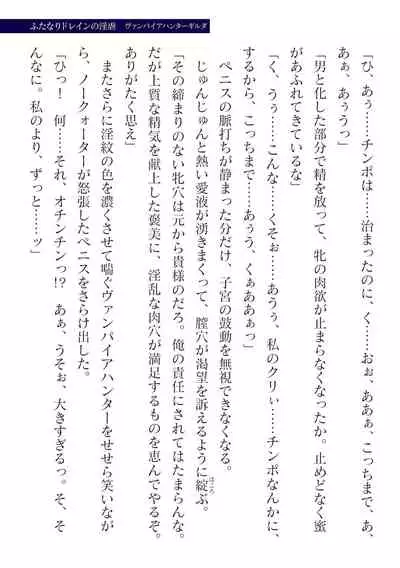 ふたなりドレインの淫虐　ヴァンパイアハンターギルダ
「ひ、あぅ……チンポは……治まったのに、く……おぉ、ああぁ、こっちまで、あ、
あぁ、あぅうっ」
「男と化した部分で精を放って、牝の肉欲が止まらなくなったか。止めどなく蜜
があふれてきているな」
「く、うぅ……こんな……くそぉ……あうぅ、私のクリぃ……チンポなんかに、
するから、こっちまで……あぅう、くぁああぁっ」
ペニスの脈打ちが静まった分だけ、子宮の鼓動を無視できなくなる。
じゅんじゅんと熱い愛液が湧きまくって、膣穴が渇望を訴えるように綻ぶ。
ほころ
「その締まりのない牝穴は元から貴様のだろ。俺の責任にされてはたまらんな。
だが上質な精気を献上した褒美に、淫乱な肉穴が満足するものを恵んでやるぞ。
ありがたく思え」
またさらに淫紋の色を濃くさせて喘ぐヴァンパイアハンターをせせら笑いなが
ら、ノークォーターが怒張したペニスをさらけ出した。
「ひっ！　何……それ、オチンチンっ!?　あぁ、うそぉ、大きすぎるっ。そ、そ
んなに。私のより、ずっと……ッ」